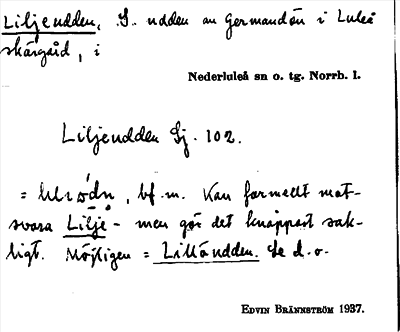 Liljeudden, S. udden av Germandön i Luleå
skärgård, i
Nederluleå sn o. tg. Norrb. l.
Liljeudden Sj. 102.
= , bf. m. Kan formellt mot-
svara Lilje- men gör det knappast sak-
ligt. Möjligen = Lillåudden. Se d.o.
EDVIN BRÄNNSTRÖM 1937.